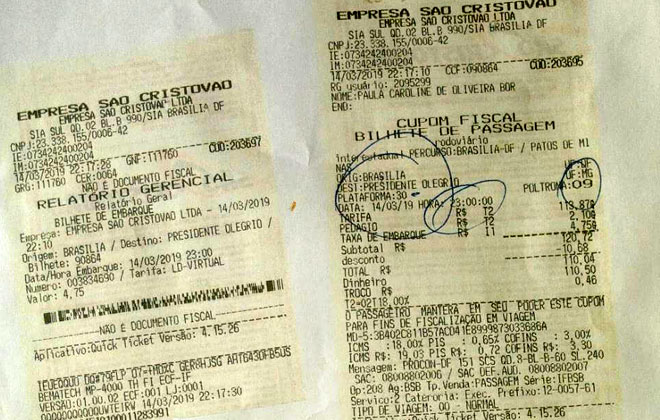 EMPRESA SAO CRISTOVAO
EMPRESA SAO CRISTOVAO LTDA
SIA SUL QD.02 BL.B 990/SIA BRASILIA DF
CNPJ:23.338.155/0006-42
IE:0734242400204
IM:0734242400204
14/03/2019 22:17:28 GNF:111760 COD:203697
GRG:111760 CER:0064
NÃO É DOCUMENTO FISCAL
RELATÓRIO GERENCIAL
Relatório Geral
BILHETE DE EMBARQUE
Empresa: EMPRESA SAO CRISTOVAO LTDA - 14/03/2019
22:10
Origem: BRASILIA / Destino: PRESIDENTE OLEGRIO /
Bilhete: 90864
Data/Hora Embarque: 14/03/2019 23:00
Numero: 003834690 / Tarifa: LD-VIRTUAL
Valor: 4,75
NÃO É DOCUMENTO FISCAL
Aplicativo:Quick Ticket Versão: 4.15.26
BEMATECH MP-4000 TH FI ECF-IF
VERSÃO:01.00.02 ECF:001 LJ:0001
14/03/2019 22:17:30
EMPRESA SAO CRISTOVAO
EMPRESA SAO CRISTOVAO LTDA
SIA SUL QD.02 BL.B 990/SIA BRASILIA DF
CNPJ:23.338.155/0006-42
IE:0734242400204
IM:0734242400204
14/03/2019 22:17:10 CCF:090864 COD:203695
RG usuário: 2095299
NOME:PAULA CAROLINE DE OLIVEIRA BOR
END:
CUPOM FISCAL
BILHETE DE PASSAGEM
rodoviário
interestadual PERCURSO:BRASILIA-DF / PATOS DE MI
NAS
ORIG:BRASILIA UF:DF
DEST:PRESIDENTE OLEGRI UF:MG
PLATAFORMA:30 POLTRONA:09
DATA: 14/03/19 HORA: 23:00:00
TARIFA R$ T2 113,87
PEDAGIO R$ T2 2,10
TAXA DE EMBARQUE R$ I1 4,75
Subtotal R$ 120,72
desconto -10,68
TOTAL R$ 110,04
Dinheiro 110,50
TROCO R$ 0,46
T2=02T18,00%
O PASSAGEIRO MANTERA EM SEU PODER ESTE CUPOM
PARA FINS DE FISCALIZACAO EM VIAGEM
ICMS :18,00% PIS : 0,65% COFINS : 3,00%
ICMS R$: 19,03 PIS R$: 0,72 COFINS R$: 3,30
Mensagem: PROCON-DF 151 SCS QD.8-BL-B-60 SL.240
SAC: 08008802006 / SAC DEF.AUD. 08008802007
Op:208 Ag:BSB Tp.Venda:PASSAGEM Série:IFBSB
Serviço:2 Categoria: Exec. Prefixo: 12-0057-61
TIPO DE VIAGEM: 00 - NORMAL
Ticket Versão: 4.15.26